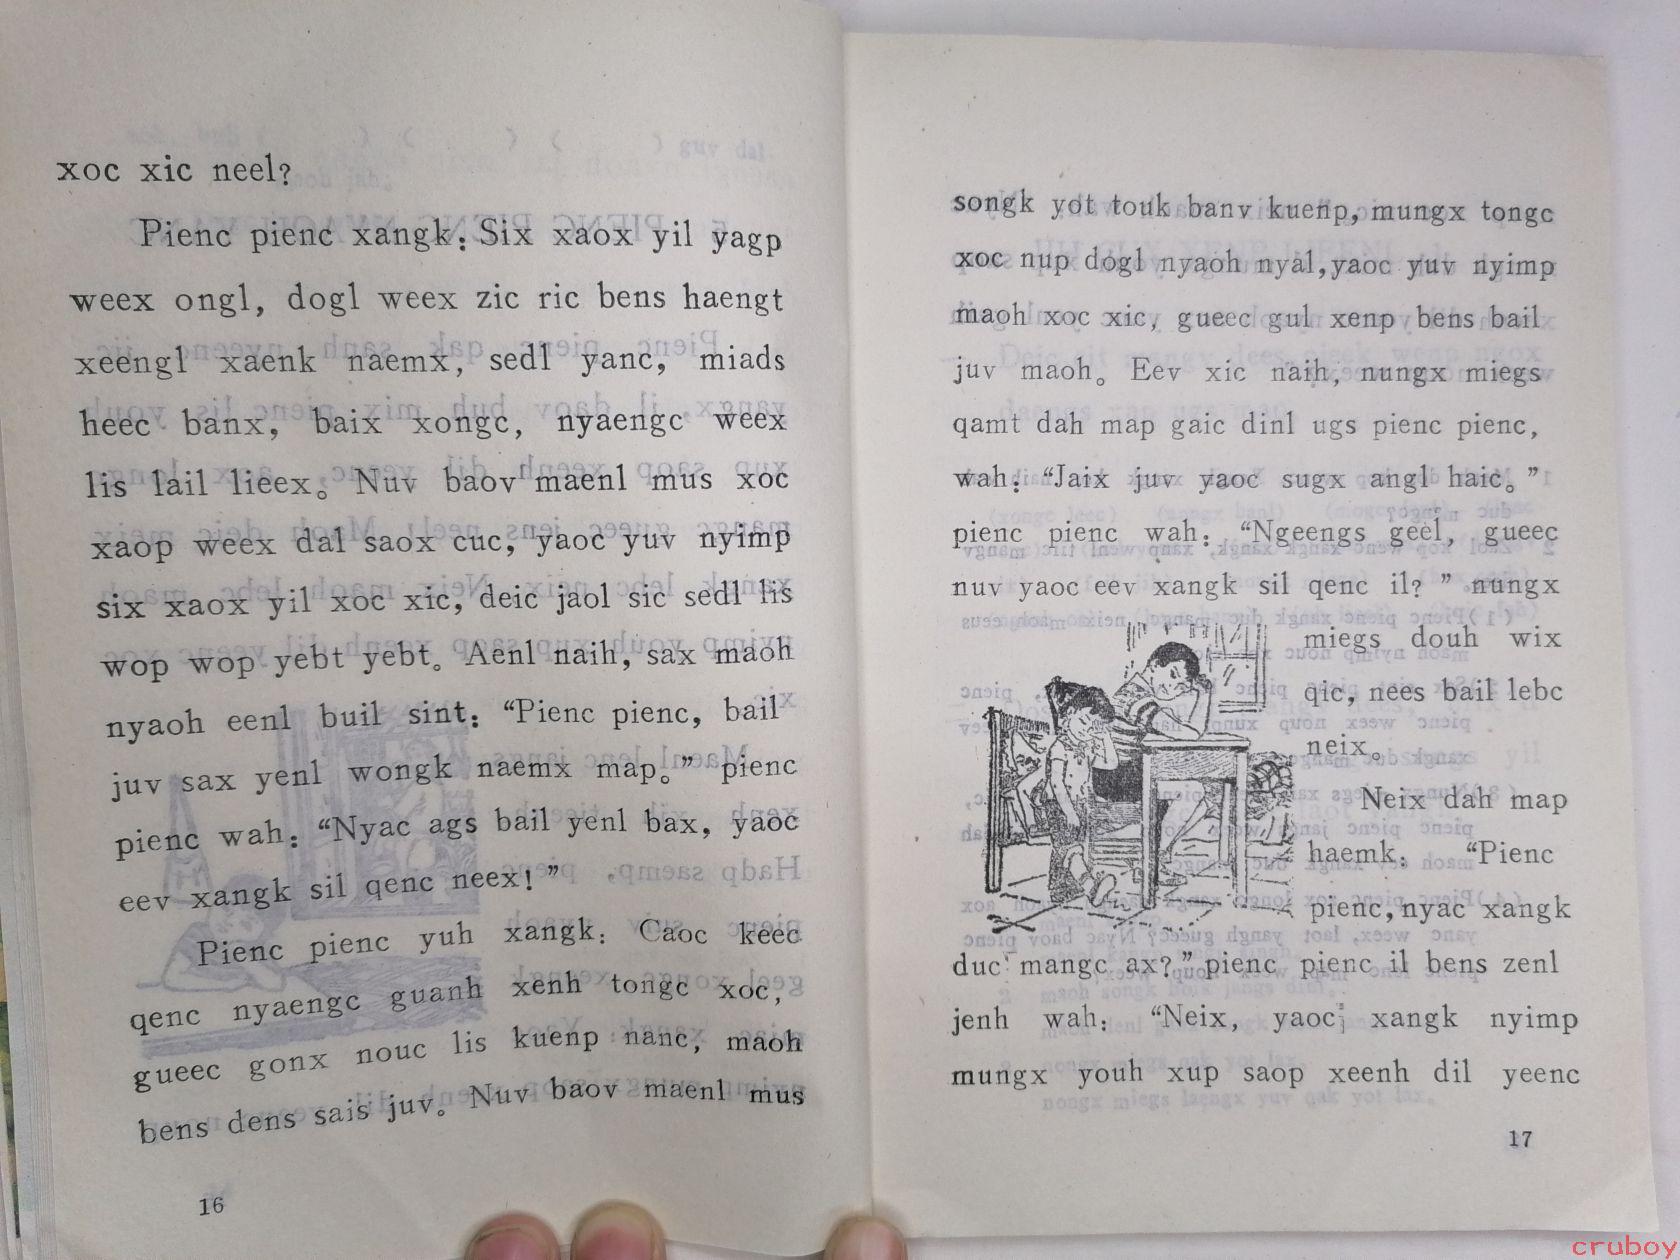 xoc xic neel?
Pienc pienc xangk: Six xaox yil yagp
weex ongl, dogl weex zic ric bens haengt
xeengl xaenk naemx, sedl yanc, miads
heec banx, baix xongc, nyaengc weex
lis lail lieex。 Nuv baov maenl mus xoc
xaop weex dal saox cuc, yaoc yuv nyimp
six xaox yil xoc xic, deic jaol sic sedl lis
wop wop yebt yebt。 Aenl naih, sax maoh
nyaoh eenl buil sint: “Pienc pienc, bail
juv sax yenl wongk naemx map。” pienc
pienc wah: “Nyac ags bail yenl bax, yaoc
eev xangk sil qenc neex! ”
Pienc pienc yuh xangk: Caoc keec
qenc nyaengc guanh xenh tongc xoc,
gueec gonx nouc lis kuenp nanc, maoh
bens dens sais juv。 Nuv baov maenl mus
16
songk yot touk banv kuenp, mungx tongc
xoc nup dogl nyaoh nyal, yaoc yuv nyimp
maoh xoc xic, gueec gul xenp bens bail
juv maoh。 Eev xic naih, nungx miegs
qamt dah map gaic dinl ugs pienc pienc,
wah: “Jaix juv yaoc sugx angl haic。”
pienc pienc wah: “Ngeengs geel, gueec
nuv yaoc eev xangk sil qenc il? ” nungx
miegs douh wix
qic, nees bail lebc
neix。
Neix dah map
haemk: “Pienc
pienc, nyac xangk
duc mangc ax? ” pienc pienc il bens zenl
jenh wah: “Neix, yaoc xangk nyimp
mungx youh xup saop xeenh dil yeenc
17
cruboy